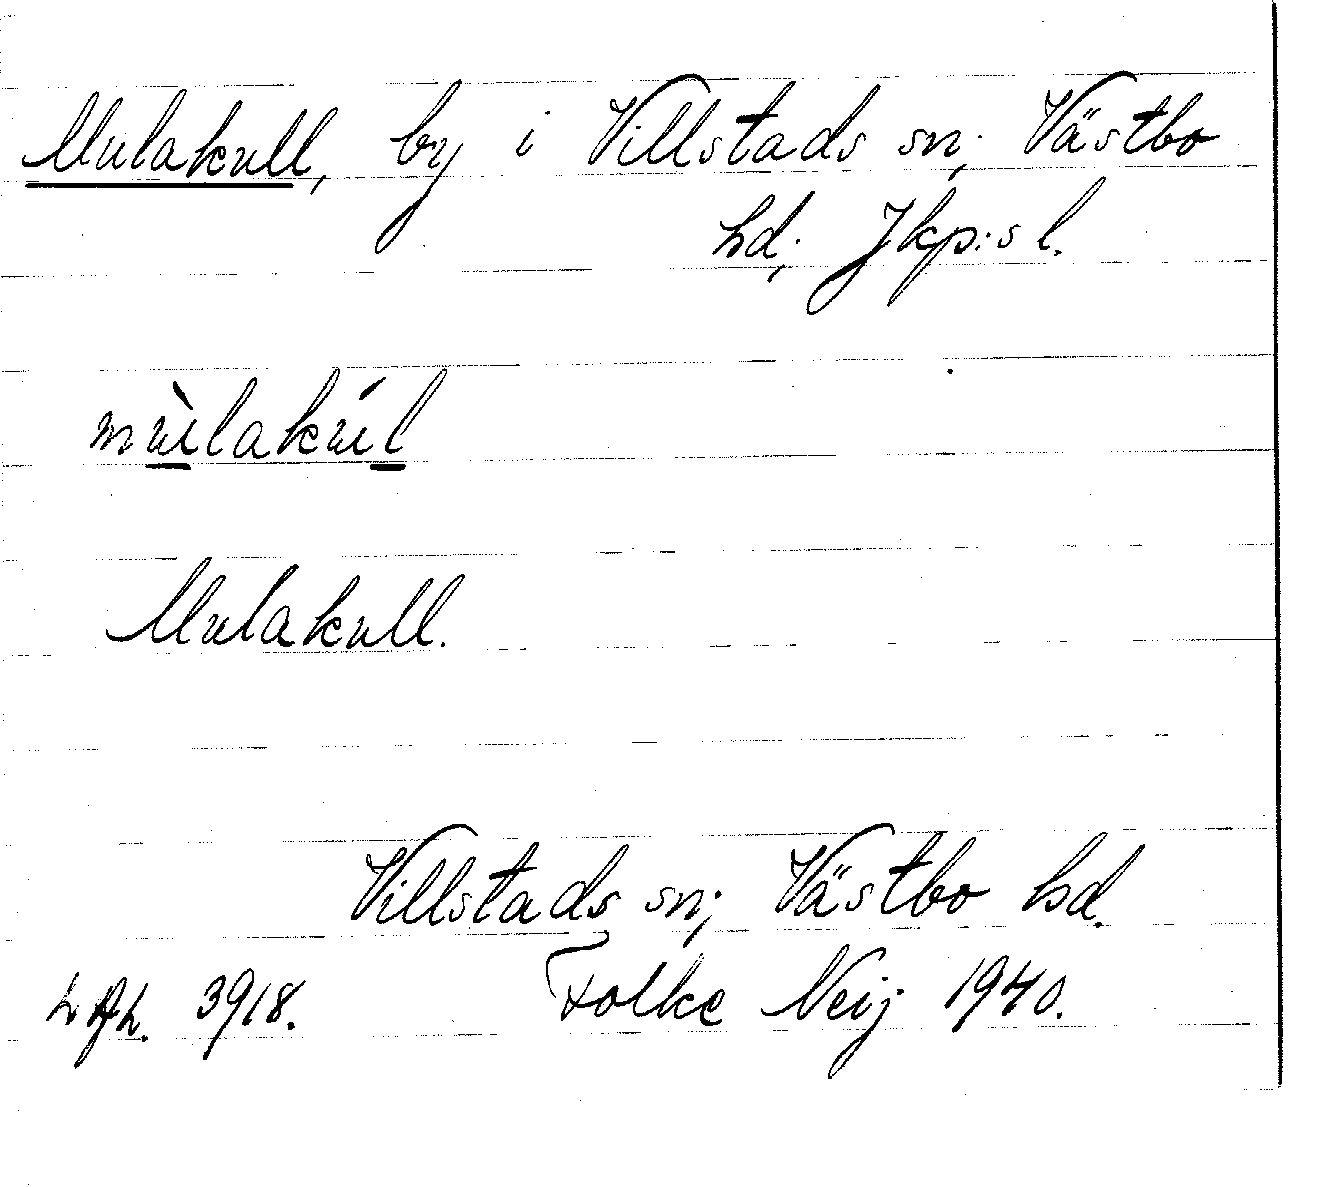 Mulakull, by i Villstads sn; Västbo
hd; Jkp:s l.
mùlakúl
Mulakull.
Villstads sn; Västbo hd.
3918. Folke Neij 1940.